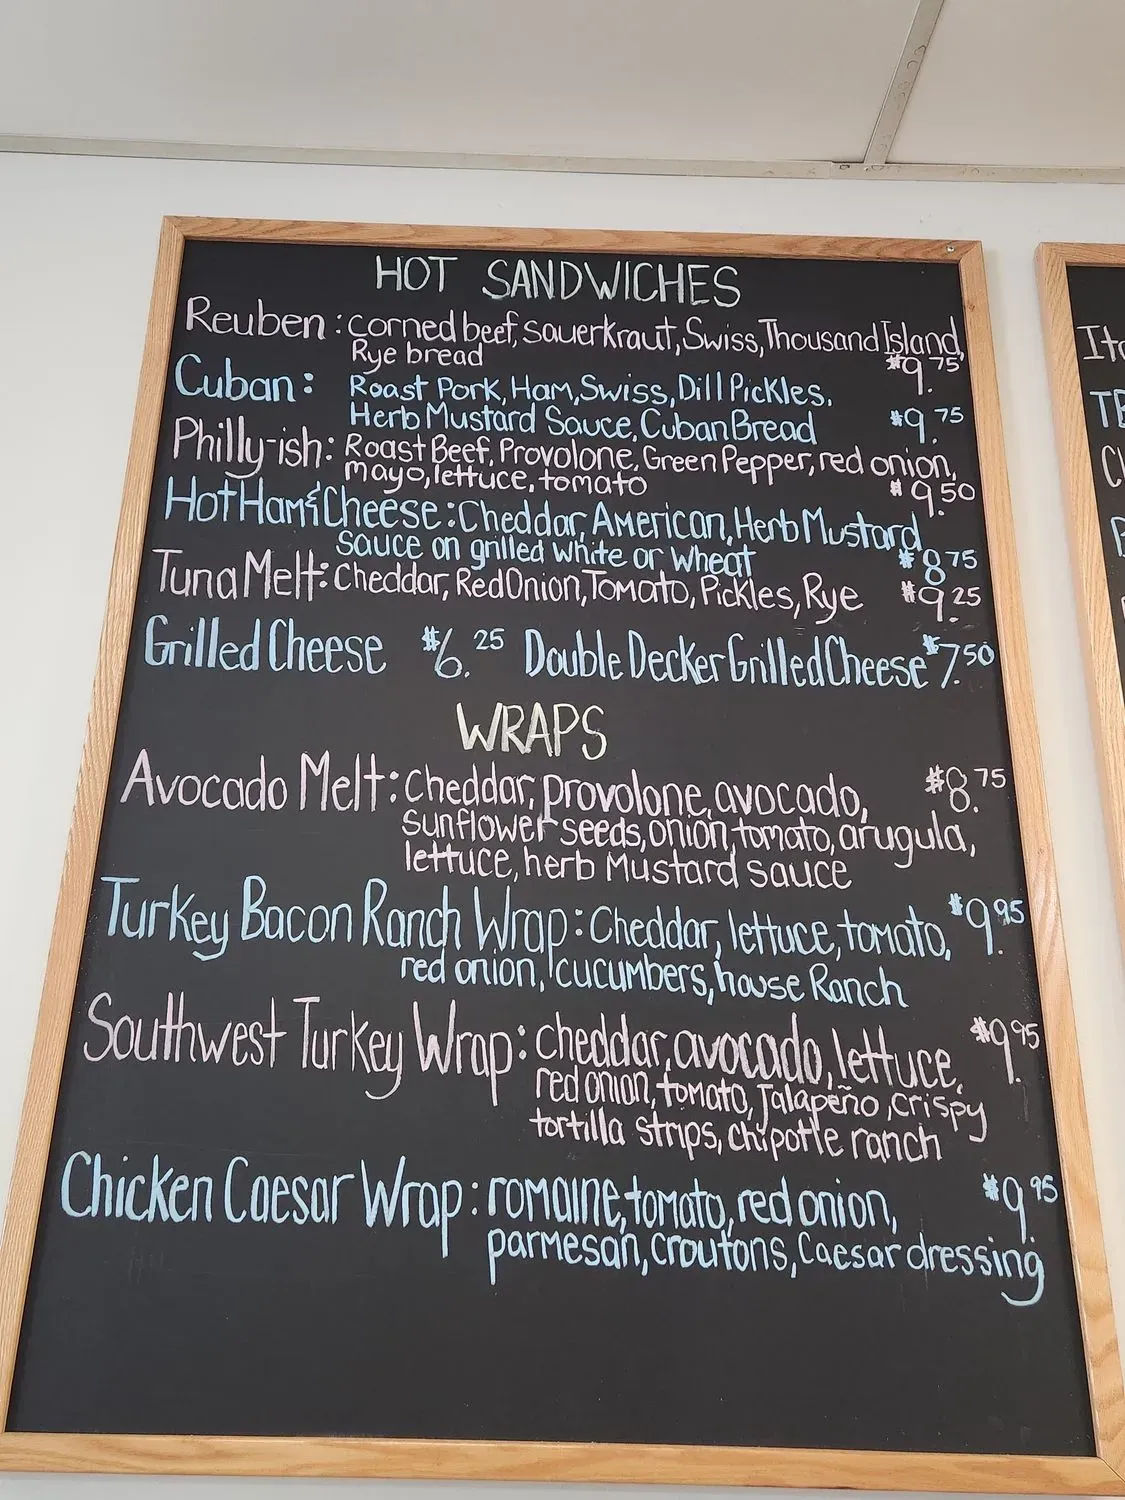 HOT SANDWICHES
Reuben: corned beef, sauerkraut, Swiss, Thousand Island,
Rye bread $9.75
Cuban: Roast Pork, Ham, Swiss, Dill Pickles,
Herb Mustard Sauce, Cuban Bread $9.75
Philly-ish: Roast Beef, Provolone, Green Pepper, red onion,
mayo, lettuce, tomato $9.50
Hot Ham & Cheese: Cheddar, American, Herb Mustard
sauce on grilled white or wheat $8.75
Tuna Melt: Cheddar, Red Onion, Tomato, Pickles, Rye $9.25
Grilled Cheese $6.25 Double Decker Grilled Cheese $7.50
WRAPS
Avocado Melt: Cheddar, provolone, avocado, $8.75
sunflower seeds, onion, tomato, arugula,
lettuce, herb Mustard sauce
Turkey Bacon Ranch Wrap: Cheddar, lettuce, tomato, $9.95
red onion, cucumbers, house Ranch
Southwest Turkey Wrap: cheddar, avocado, lettuce, $9.95
red onion, tomato, jalapeño, crispy
tortilla strips, chipotle ranch
Chicken Caesar Wrap: romaine, tomato, red onion, $9.95
parmesan, croutons, Caesar dressing